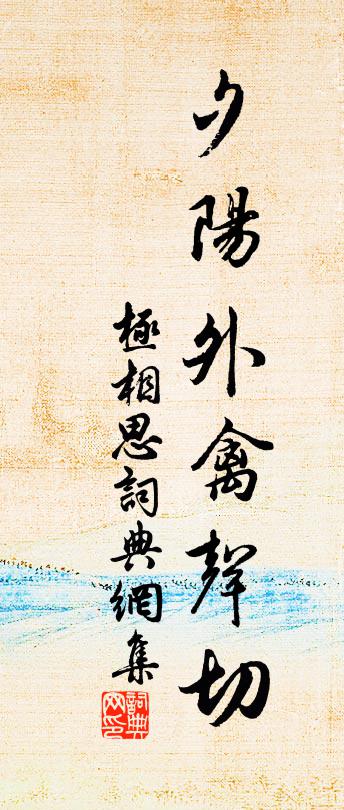 夕陽外禽聲切
極相思詞典網集
詞典
网印